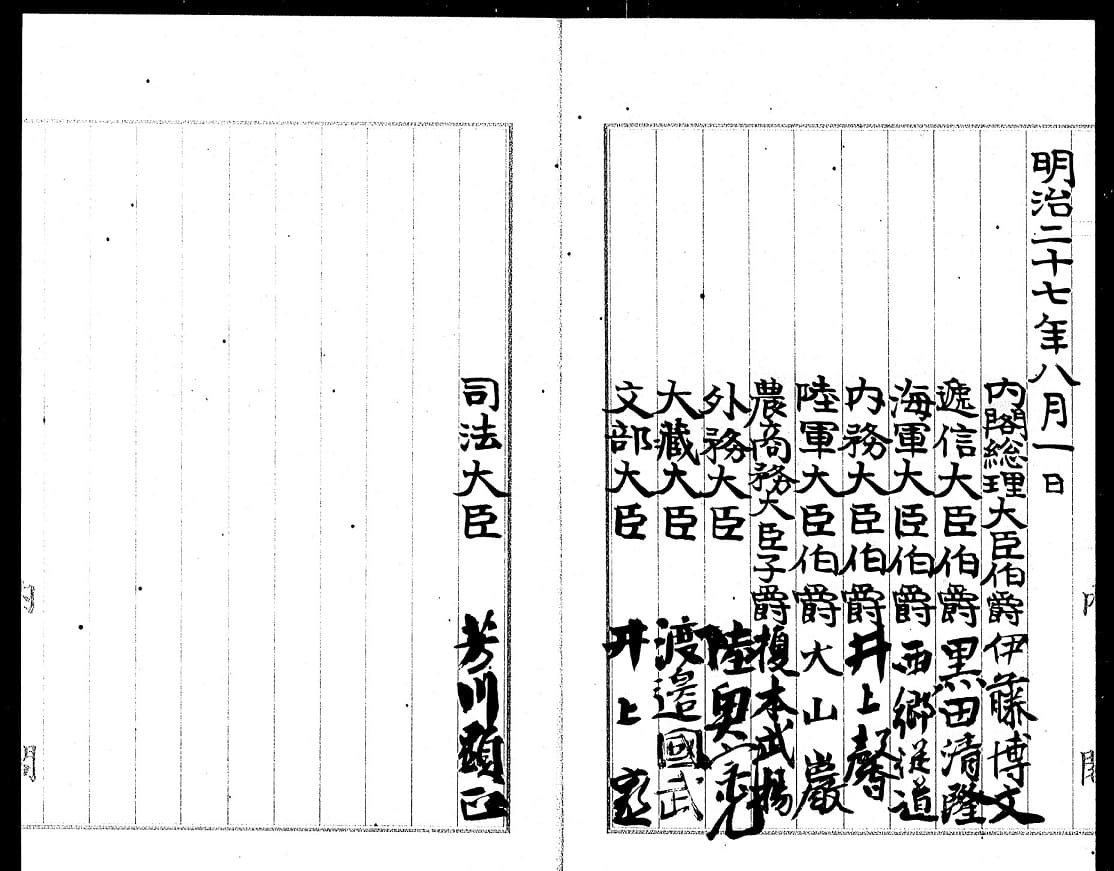 明治二十七年八月一日
内閣総理大臣伯爵伊藤博文
遞信大臣伯爵黒田清隆
海軍大臣伯爵西郷従道
内務大臣伯爵井上馨
陸軍大臣伯爵大山巌
農商務大臣子爵榎本武揚
外務大臣 陸奥宗光
大藏大臣 渡邉國武
文部大臣 井上毅
司法大臣 芳川顕正
内閣